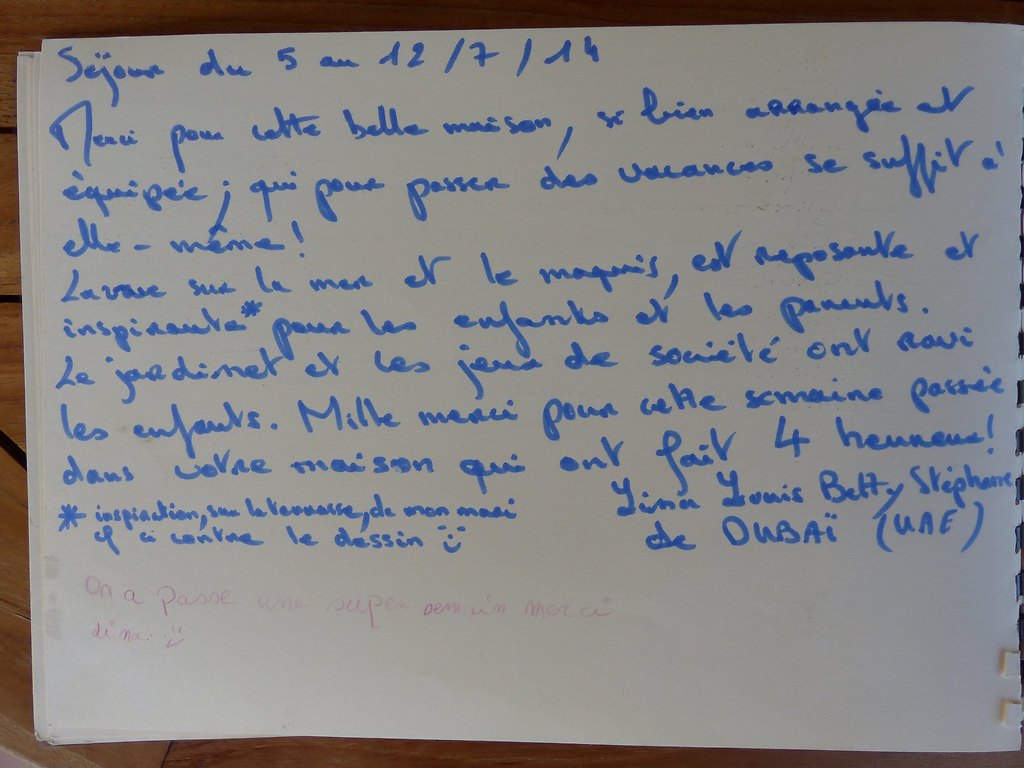 Séjour du 5 au 12/7/14
Merci pour cette belle maison, si bien arrangée et
équipée ; qui pour passer des vacances se suffit à
elle-même !
La vue sur la mer et le maquis, est reposante et
inspirante* pour les enfants et les parents.
Le jardinet et les jeux de société ont ravi
les enfants. Mille merci pour cette semaine passée
dans votre maison qui ont fait 4 heureux !
* inspiration, sur la terrasse, de mon mari
cf ci contre le dessin :)
Louis Betty Stéphane
de DUBAÏ (UAE)
On a passe une super semain merci
dina :)